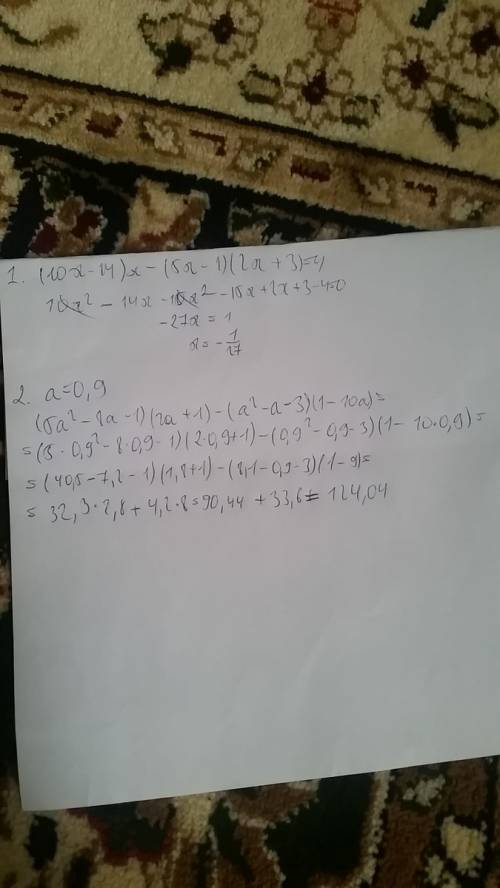 1. (10x-14)x-(5x-1)(2x+3)=4
10x²-14x-10x²-15x+2x+3-4=0
-27x=1
x=-1/27
2. a=0,9
(5a²-8a-1)(2a+1)-(a²-a-3)(1-10a)=
=(5·0,9²-8·0,9-1)(2·0,9+1)-(0,9²-0,9-3)(1-10·0,9)=
=(40,5-7,2-1)(1,8+1)-(8,1-0,9-3)(1-9)=
=32,3·2,8+4,2·8=90,44+33,6=124,04